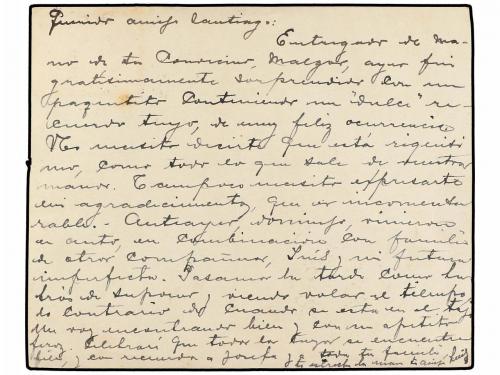 Querido amigo Santiago:
Entregado de ma-
no de tu convecino, Melgar, ayer fuí
gratísimamente sorprendido con un
paquetito conteniendo un "dulce" re-
cuerdo tuyo, de muy feliz ocurrencia
No necesito decirte que está riquísi
mo, como todo lo que sale de vuestras
manos. Tampoco necesito expresarte
mi agradecimiento, que es inconmensu
rable.- Anteayer domingo, vinieron
en auto, en combinación con familia
de otro compañero, Inés y mi futura
imperfecta. Pasamos la tarde como ha
brás de suponer y viendo volar el tiempo
lo contrario de cuando se está en el
Me voy encontrando bien y con un apetito
feroz. Celebraré que todos los tuyos se encuentren
bien, y con recuerdos a Josefa y a toda tu familia
te estrecha la mano tu amigo